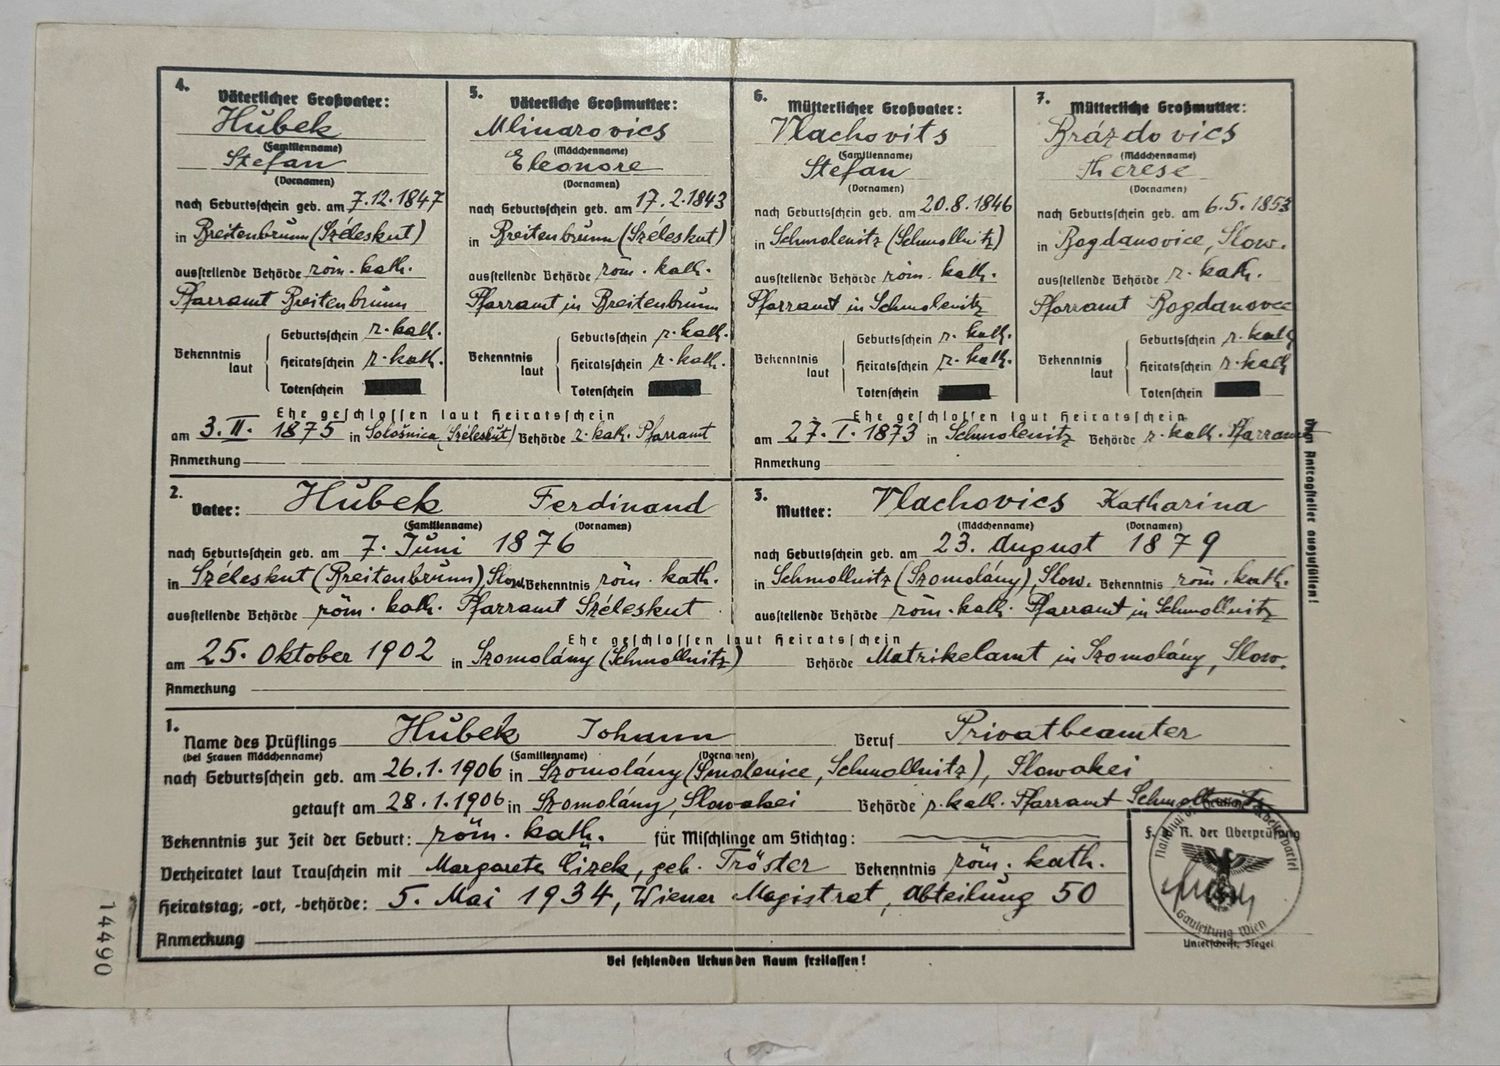 4.
Väterlicher Großvater:
Hŭbek
(Familienname)
Stefan
(Vornamen)
nach Geburtsschein geb. am 7.12.1847
in Breitenbrunn (Széleskut)
ausstellende Behörde röm. kath.
Pfarramt Breitenbrunn
Bekenntnis laut
Geburtsschein r. kath.
Heiratsschein r. kath.
Totenschein
5.
Väterliche Großmutter:
Mlinarovics
(Mädchenname)
Eleonore
(Vornamen)
nach Geburtsschein geb. am 17.2.1843
in Breitenbrunn (Széleskut)
ausstellende Behörde röm. kath.
Pfarramt in Breitenbrunn
Bekenntnis laut
Geburtsschein r. kath.
Heiratsschein r. kath.
Totenschein
Ehe geschlossen laut Heiratsschein
am 3. II. 1875 in Sološnica (Széleskut) Behörde r. kath. Pfarramt
Anmerkung
6.
Mütterlicher Großvater:
Vlachovits
(Familienname)
Stefan
(Vornamen)
nach Geburtsschein geb. am 20.8.1846
in Schmolenitz (Schmollnitz)
ausstellende Behörde röm. kath.
Pfarramt in Schmolenitz
Bekenntnis laut
Geburtsschein r. kath.
Heiratsschein r. kath.
Totenschein
7.
Mütterliche Großmutter:
Brázdovics
(Mädchenname)
Therese
(Vornamen)
nach Geburtsschein geb. am 6.5.1853
in Bogdanovice, Slow.
ausstellende Behörde r. kath.
Pfarramt Bogdanovce
Bekenntnis laut
Geburtsschein r. kath
Heiratsschein r. kath
Totenschein
Ehe geschlossen laut Heiratsschein
am 27. I. 1873 in Schmolenitz Behörde r. kath. Pfarramt
Anmerkung
2.
Vater: Hŭbek Ferdinand
(Familienname) (Vornamen)
nach Geburtsschein geb. am 7. Juni 1876
in Széleskut (Breitenbrunn) Slow. Bekenntnis röm. kath.
ausstellende Behörde röm. kath. Pfarramt Széleskut
3.
Mutter: Vlachovics Katharina
(Mädchenname) (Vornamen)
nach Geburtsschein geb. am 23. August 1879
in Schmollnitz (Szomolány), Slow. Bekenntnis röm. kath.
ausstellende Behörde röm. kath. Pfarramt in Schmollnitz
Ehe geschlossen laut Heiratsschein
am 25. Oktober 1902 in Szomolány (Schmollnitz) Behörde Matrikelamt in Szomolány, Slow.
Anmerkung
Vom Antragsteller auszufüllen!
1.
Name des Prüflings Hŭbek Johann Beruf Privatbeamter
(bei Frauen Mädchenname) (Familienname) (Vornamen)
nach Geburtsschein geb. am 26.1.1906 in Szomolány (Smolenice, Schmollnitz), Slowakei
getauft am 28.1.1906 in Szomolány, Slowakei Behörde r. kath. Pfarramt Schmollnitz
Bekenntnis zur Zeit der Geburt: röm. kath. für Mischlinge am Stichtag:
Verheiratet laut Trauschein mit Margarete Čizek, geb. Tröster Bekenntnis röm. kath.
Heiratstag; -ort, -behörde: 5. Mai 1934, Wiener Magistrat, Abteilung 50
Anmerkung
F. d. R. der Überprüfung
Gauleitung Wien
Unterschrift, Siegel
Bei fehlenden Urkunden Raum freilassen!
14490